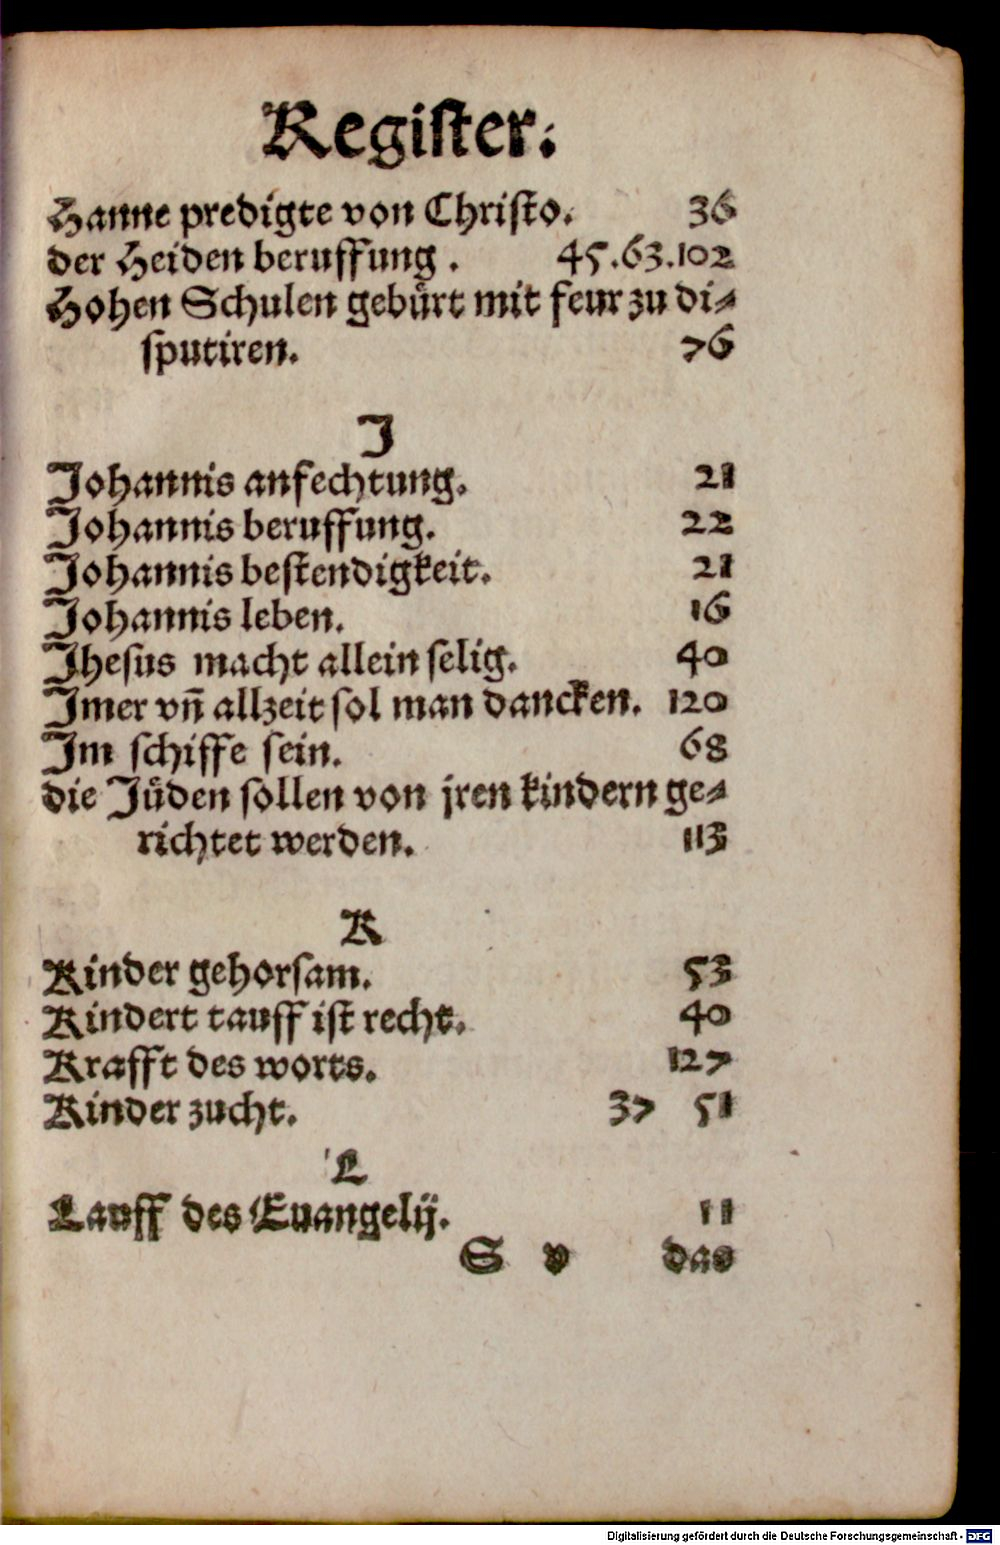 Regiſter.
Hanne predigte von Chriſto. 36
der Heiden beruffung . 45.63.102
Hohen Schulen gebuͤrt mit feur zu di⸗
ſputiren. 76
J
Johannis anfechtung. 21
Johannis beruffung. 22
Johannis beſtendigkeit. 21
Johannis leben. 16
Jheſus macht allein ſelig. 40
Jmer vñ allzeit ſol man dancken. 120
Jm ſchiffe ſein. 68
die Juͤden ſollen von jren kindern ge⸗
richtet werden. 113
K
Kinder gehorſam. 53
Kindert tauff iſt recht. 40
Krafft des worts. 127
Kinder zucht. 37 51
L
Lauff des Euangelij. 11
S v das
Digitalisierung gefördert durch die Deutsche Forschungsgemeinschaft - DFG